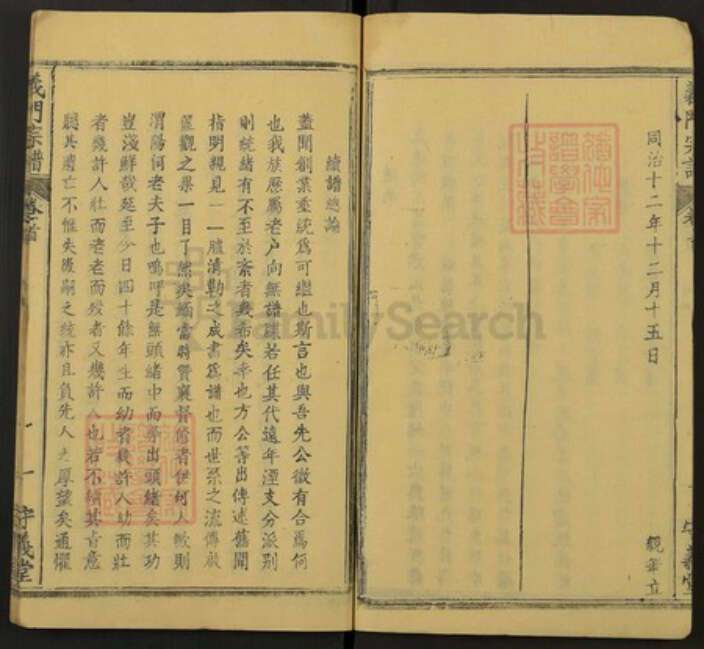 同治十二年十二月十五日
立
義門宗譜
守義堂
續譜總論
蓋聞創業垂統為可繼也斯言也與吾先公微有合焉何
也我族歷屬老户向無譜牒若任其代遠年湮支分派別
則統緒有不至於紊者幾希矣幸也方公等出傳述舊聞
指明親見一一臚清勒之成書為譜也而世系之流傳
觀之畢一目了然矣緬當時贊襄督修者伊何人斯則
渭陽何老夫子也嗚呼是無頭緒中而尋出頭緒矣其功
豈淺鮮哉延至今日四十餘年生而幼者幾許人幼而壯
者幾許人壯而老老而歿者又幾許人也若不續其
聽其遺亡不惟失後嗣之紀亦且負先人之厚望矣通懼
義門宗譜
卷首
一
守義堂
FamilySearch